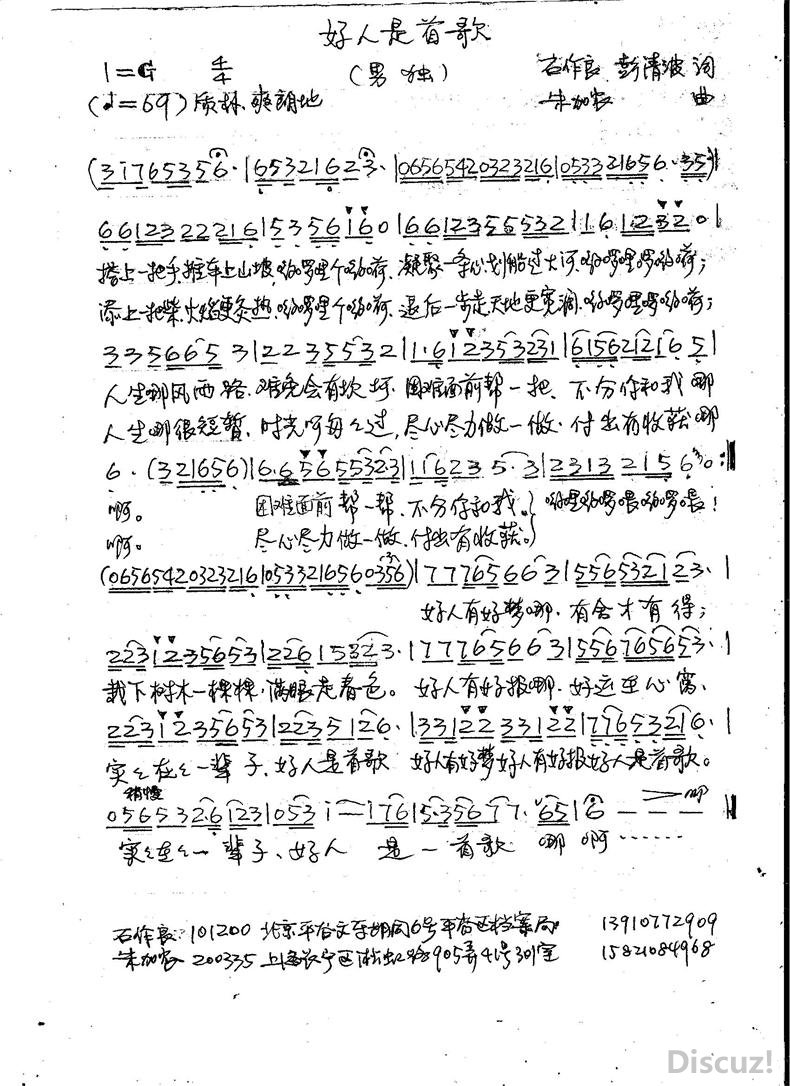 好人是首歌
1=G 4/4 (男独) 石作良 彭清波 词
(♩=69) 质朴、爽朗地 朱加农 曲
(3i765356· | 6532162 3· | 06565420323216 | 0533216 5 6· 35)
66123 222216 | 5356 i60 | 6612355532 | 16 12320 |
搭上一把手,推车上山坡,哟啰里个哟荷,凝聚一条心,划船过大河,哟啰里啰哟荷;
添上一把柴,火焰更炙热,哟啰里个哟荷,退后一步走,天地更宽阔,哟啰哩啰哟荷;
335665 3 | 2235532 | 1·6i2353231 | 61562121 65 |
人生那风雨路,难免会有坎坷,困难面前帮一把,不分你和我哪
人生哪很短暂,时光呵匆匆过,尽心尽力做一做,付出有收获哪
6·(321656) | 6·65655323 | 116235·3 | 2313 2156 0 :‖
啊。 困难面前帮一帮,不分你和我。} 哟哩哟啰喂哟啰喂!
啊。 尽心尽力做一做,付出有收获。}
(06565420323216 | 05332165 6 0356) | 777656 63 | 556532123· |
好人有好梦哪,有舍才有得;
223i235653 | 2261 5323· | 777656 63 | 5567656 53· |
栽下树木一棵棵,满眼是春色。好人有好报哪,好运至心窝、
223i2356 53 | 22351 26· | 3312233122 | 7765 3216· |
实实在在一辈子,好人是首歌 好人有好梦好人有好报好人是首歌。
稍慢 mp
0565 32·6123 | 053 i — i76 | 5·356 77· 65 | 6 — — — ‖
实实在在一辈子、好人 是 一首歌 哪 啊……
石作良:101200 北京平谷文李胡同6号平谷区档案局 13910772909
朱加农 200335 上海长宁区淞虹路905弄41号301室 15821084968
Discuz!